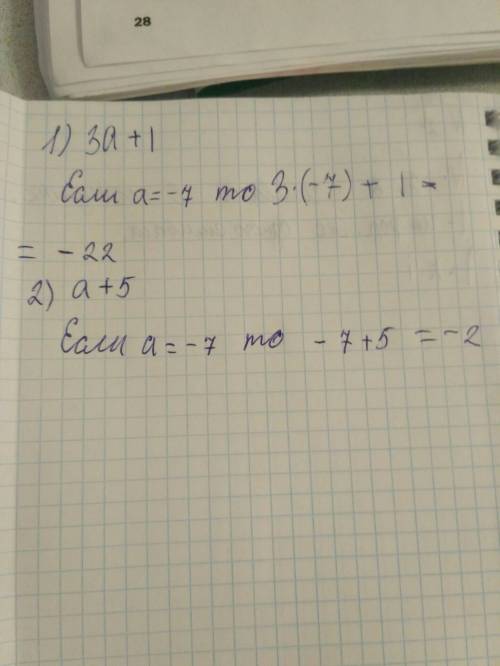 28
1) 3a + 1
Если a = -7 то 3·(-7) + 1 =
= -22
2) a + 5
Если a = -7 то - 7 + 5 = -2